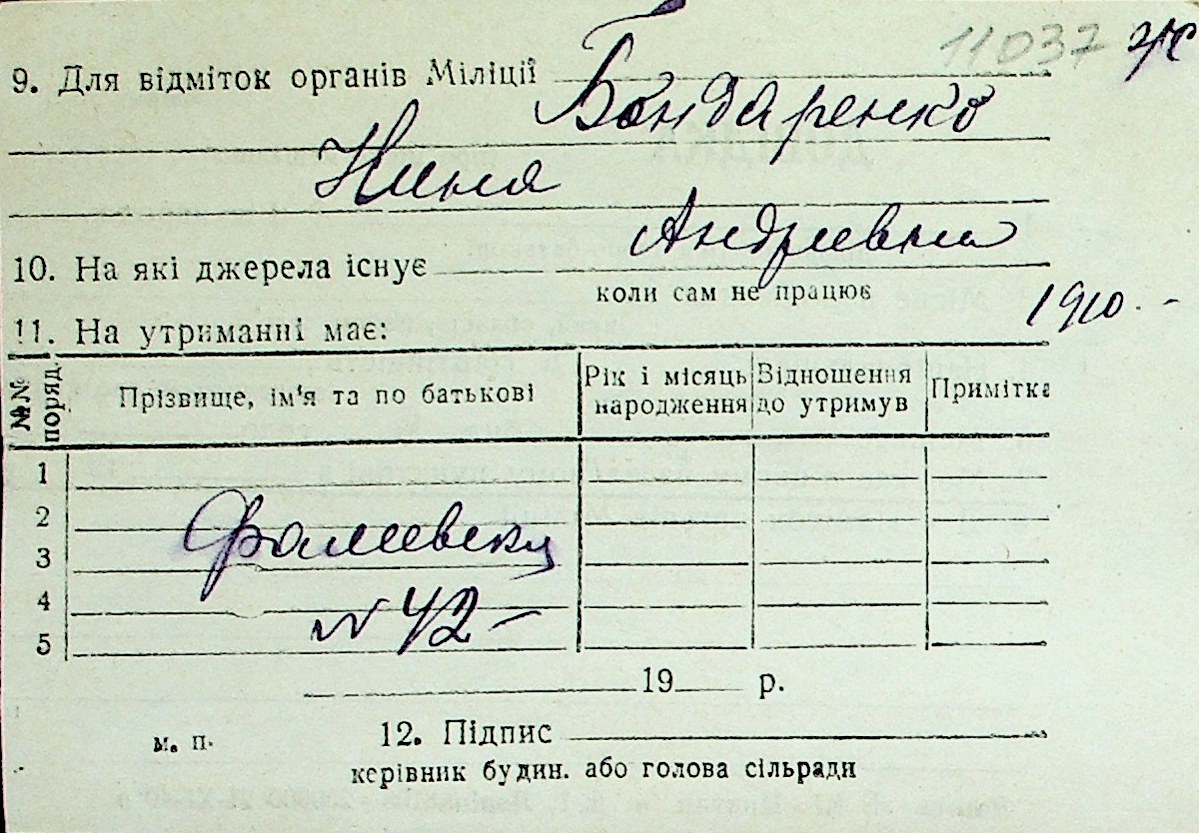 11037 
9. Для відміток органів Міліції
Бондаренко
Нина
Андриевна
10. На які джерела існує
коли сам не працює
1910. -
11. На утриманні має:
№№ поряд. Прізвище, ім'я та по батькові Рік і місяць народження Відношення до утримув Примітка
1
2
3
4
5
№ 42 -
19 р.
м. п.
12. Підпис
керівник будин. або голова сільради